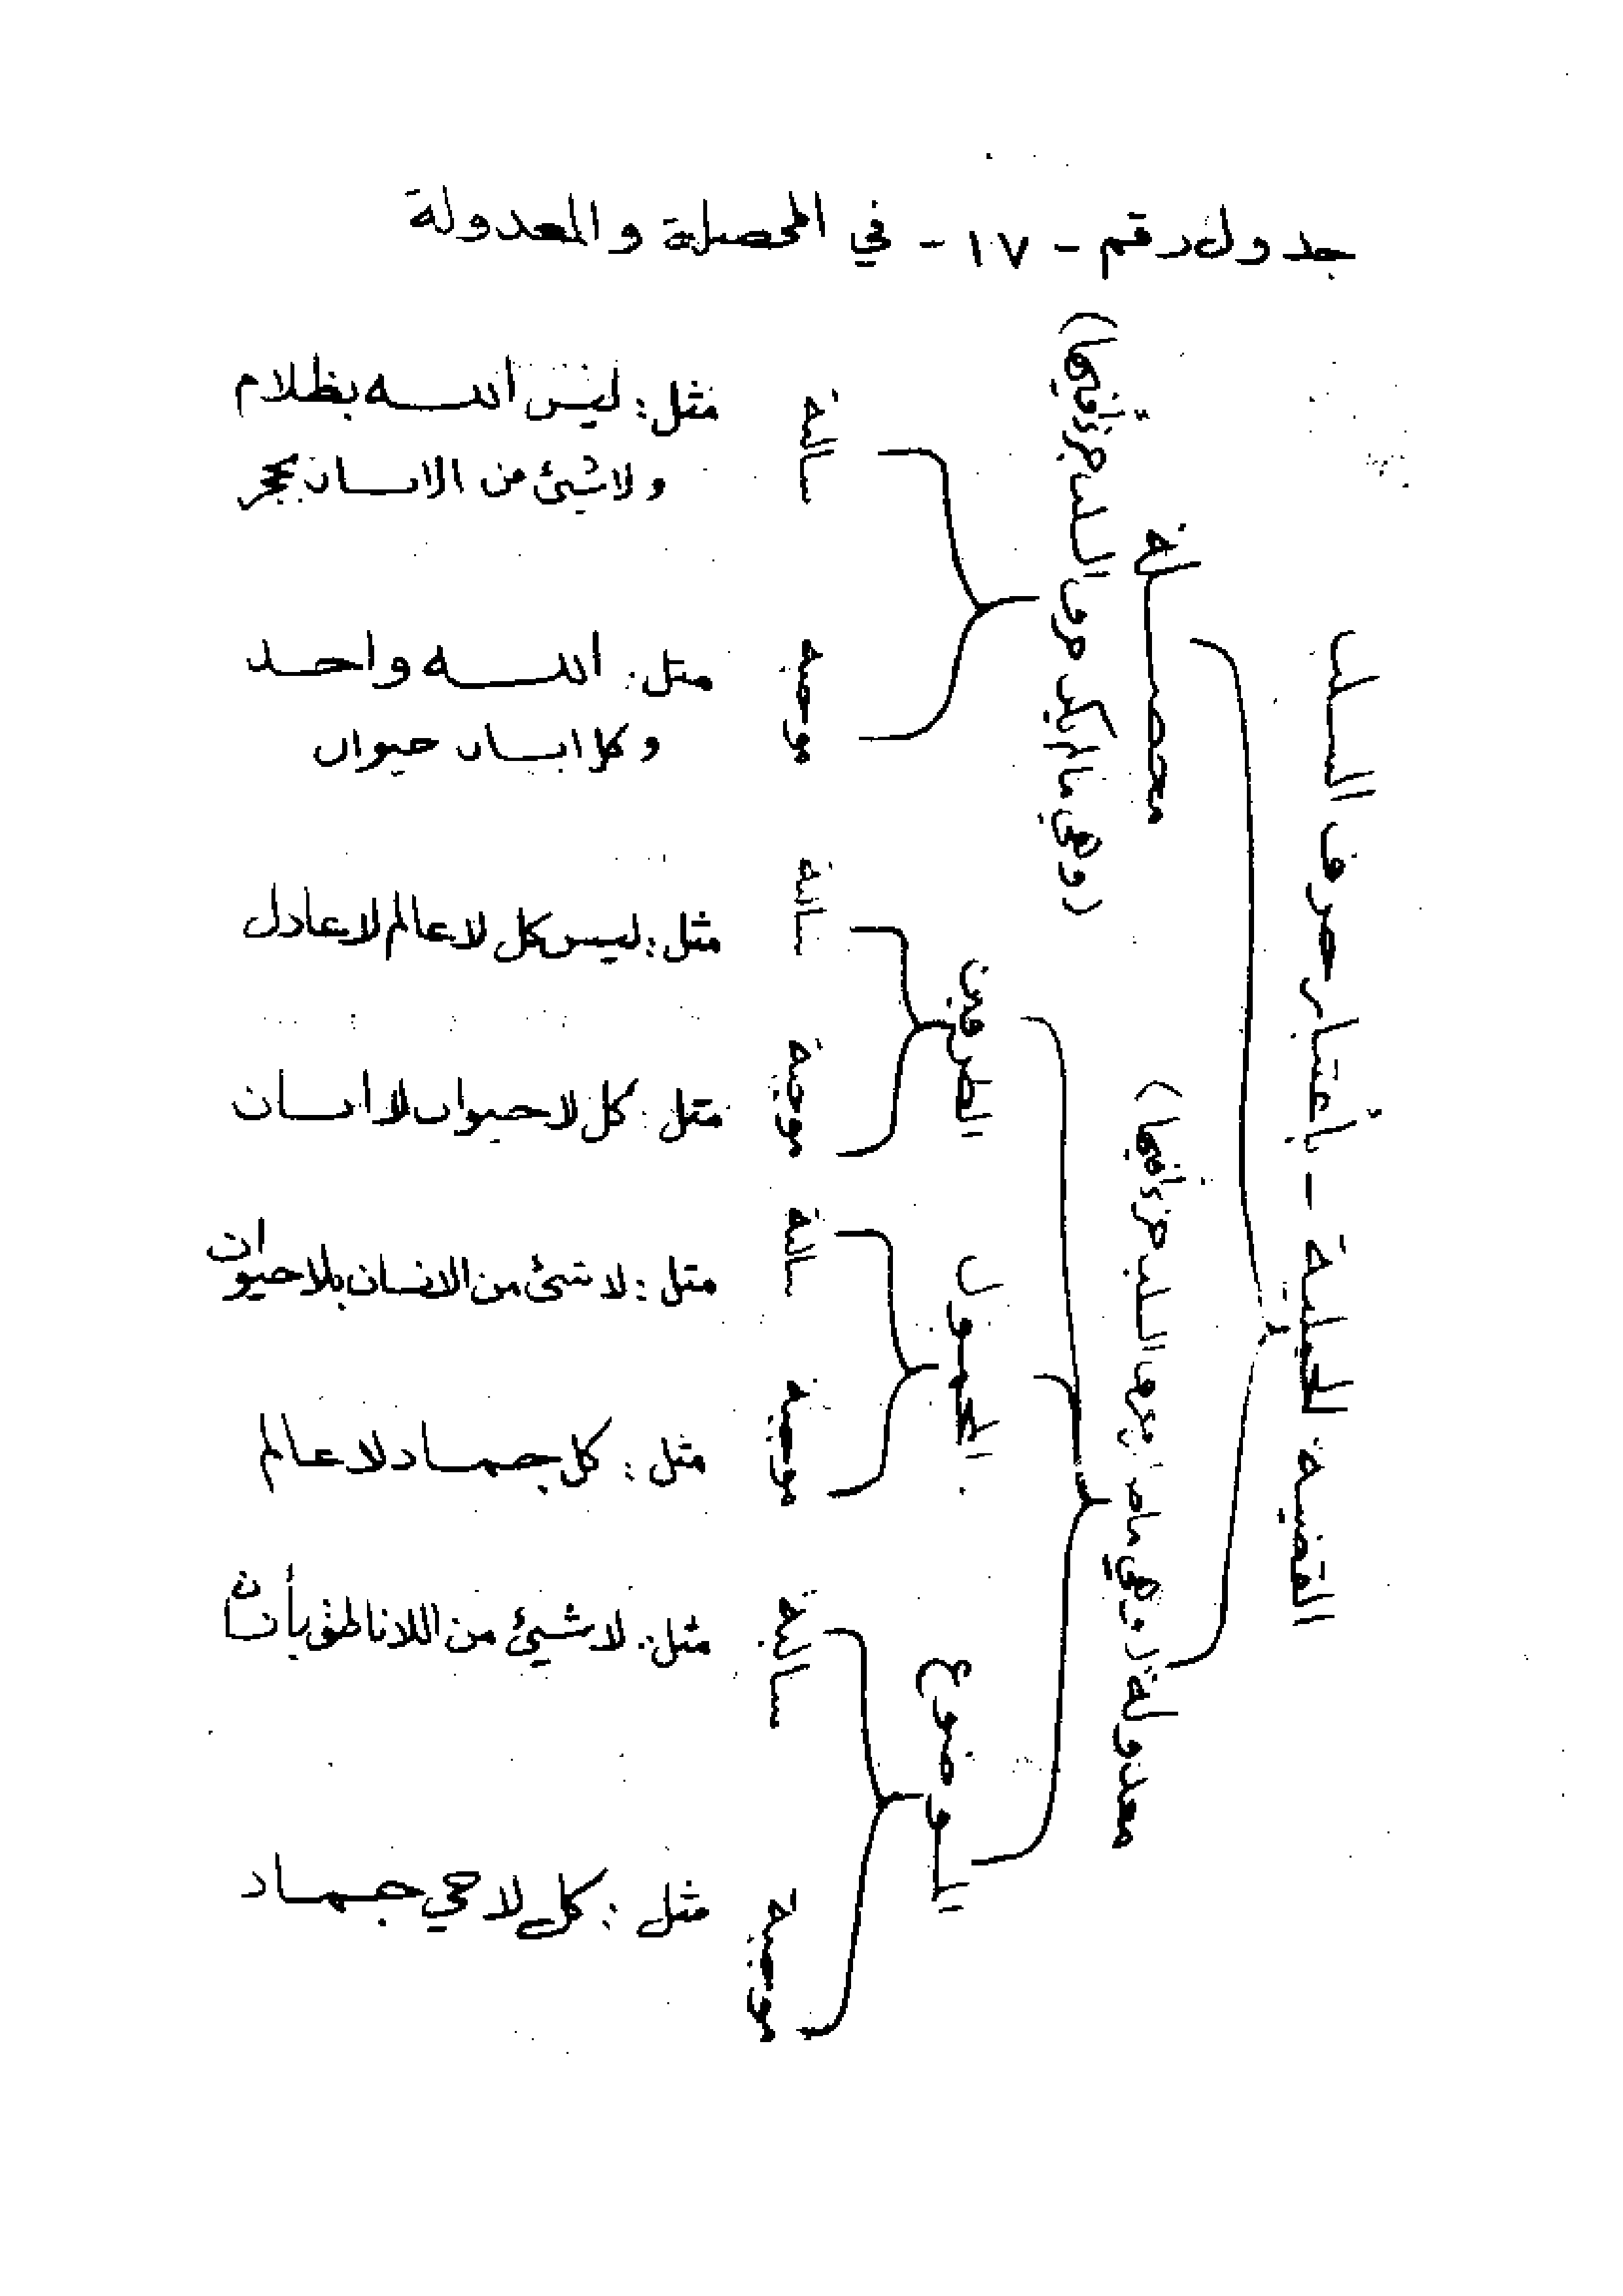 جدول رقم - ١٧ - في المحصلة والمعدولة
القضية الحملية - بأعتبار حرف السلب
محصلة
(وهي مالم يكن حرف السلب جزءاً فيها)
سالبة
مثل: ليس الله بظلام
ولا شيئ من الانسان بحجر
موجبة
مثل: الله واحد
وكل انسان حيوان
معدولة (وهي ما صار حرف السلب جزءاً فيها)
الطرفين
سالبة
مثل: ليس كل لا عالم لا عادل
موجبة
مثل: كل لا حيوان لا انسان
المحمول
سالبة
مثل: لا شئ من الانسان بلا حيوان
موجبة
مثل: كل جماد لا عالم
الموضوع
سالبة
مثل: لا شيئ من اللا ناطق بأنسان
موجبة
مثل: كل لا حي جماد